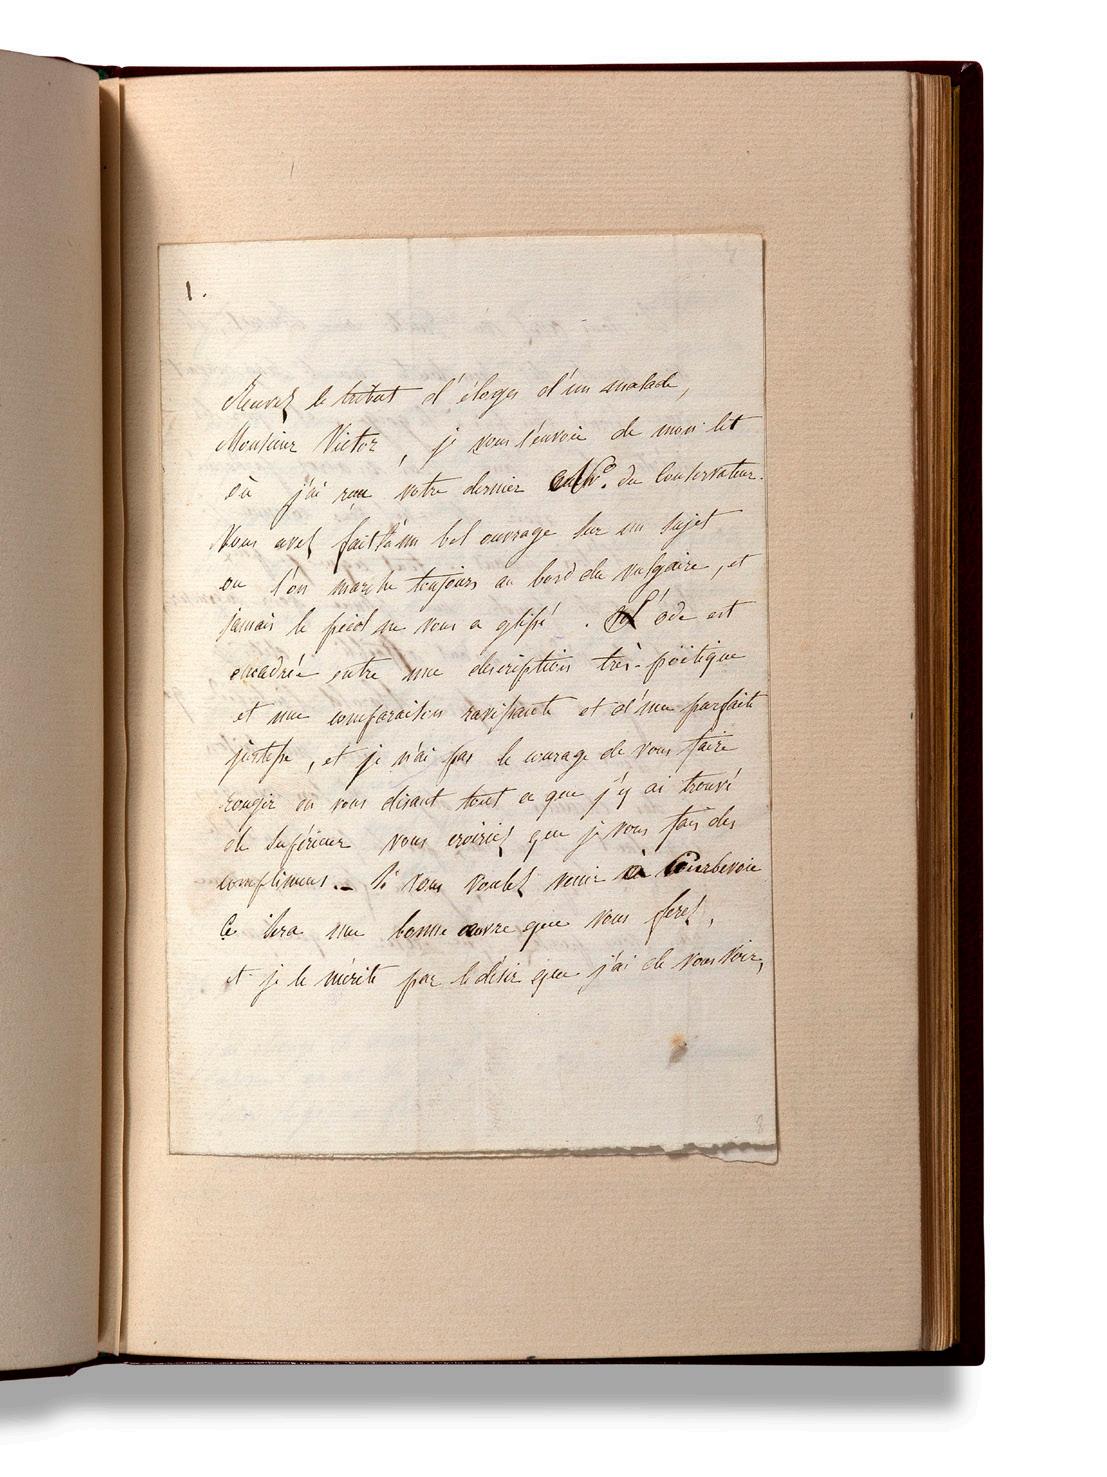 1.
Recevez le tribut d'éloges d'un malade,
Monsieur Victor, je vous l'envoie de mon lit
où j'ai reçu votre dernier N°. du Conservateur.
Vous avez fait là un bel ouvrage sur un sujet
ou l'on marche toujours au bord du vulgaire, et
jamais le pied ne vous a glissé. L'ode est
encadrée entre une description très-poëtique
et une comparaison ravissante et d'une parfaite
justesse, et je n'ai pas le courage de vous faire
rougir en vous disant tout ce que j'y ai trouvé
de supérieur vous croiriez que je vous fais des
complimens. – Si vous voulez venir à Courbevoie
Ce sera une bonne œuvre que vous ferez,
et je le mérite par le désir que j'ai de vous voir,
8